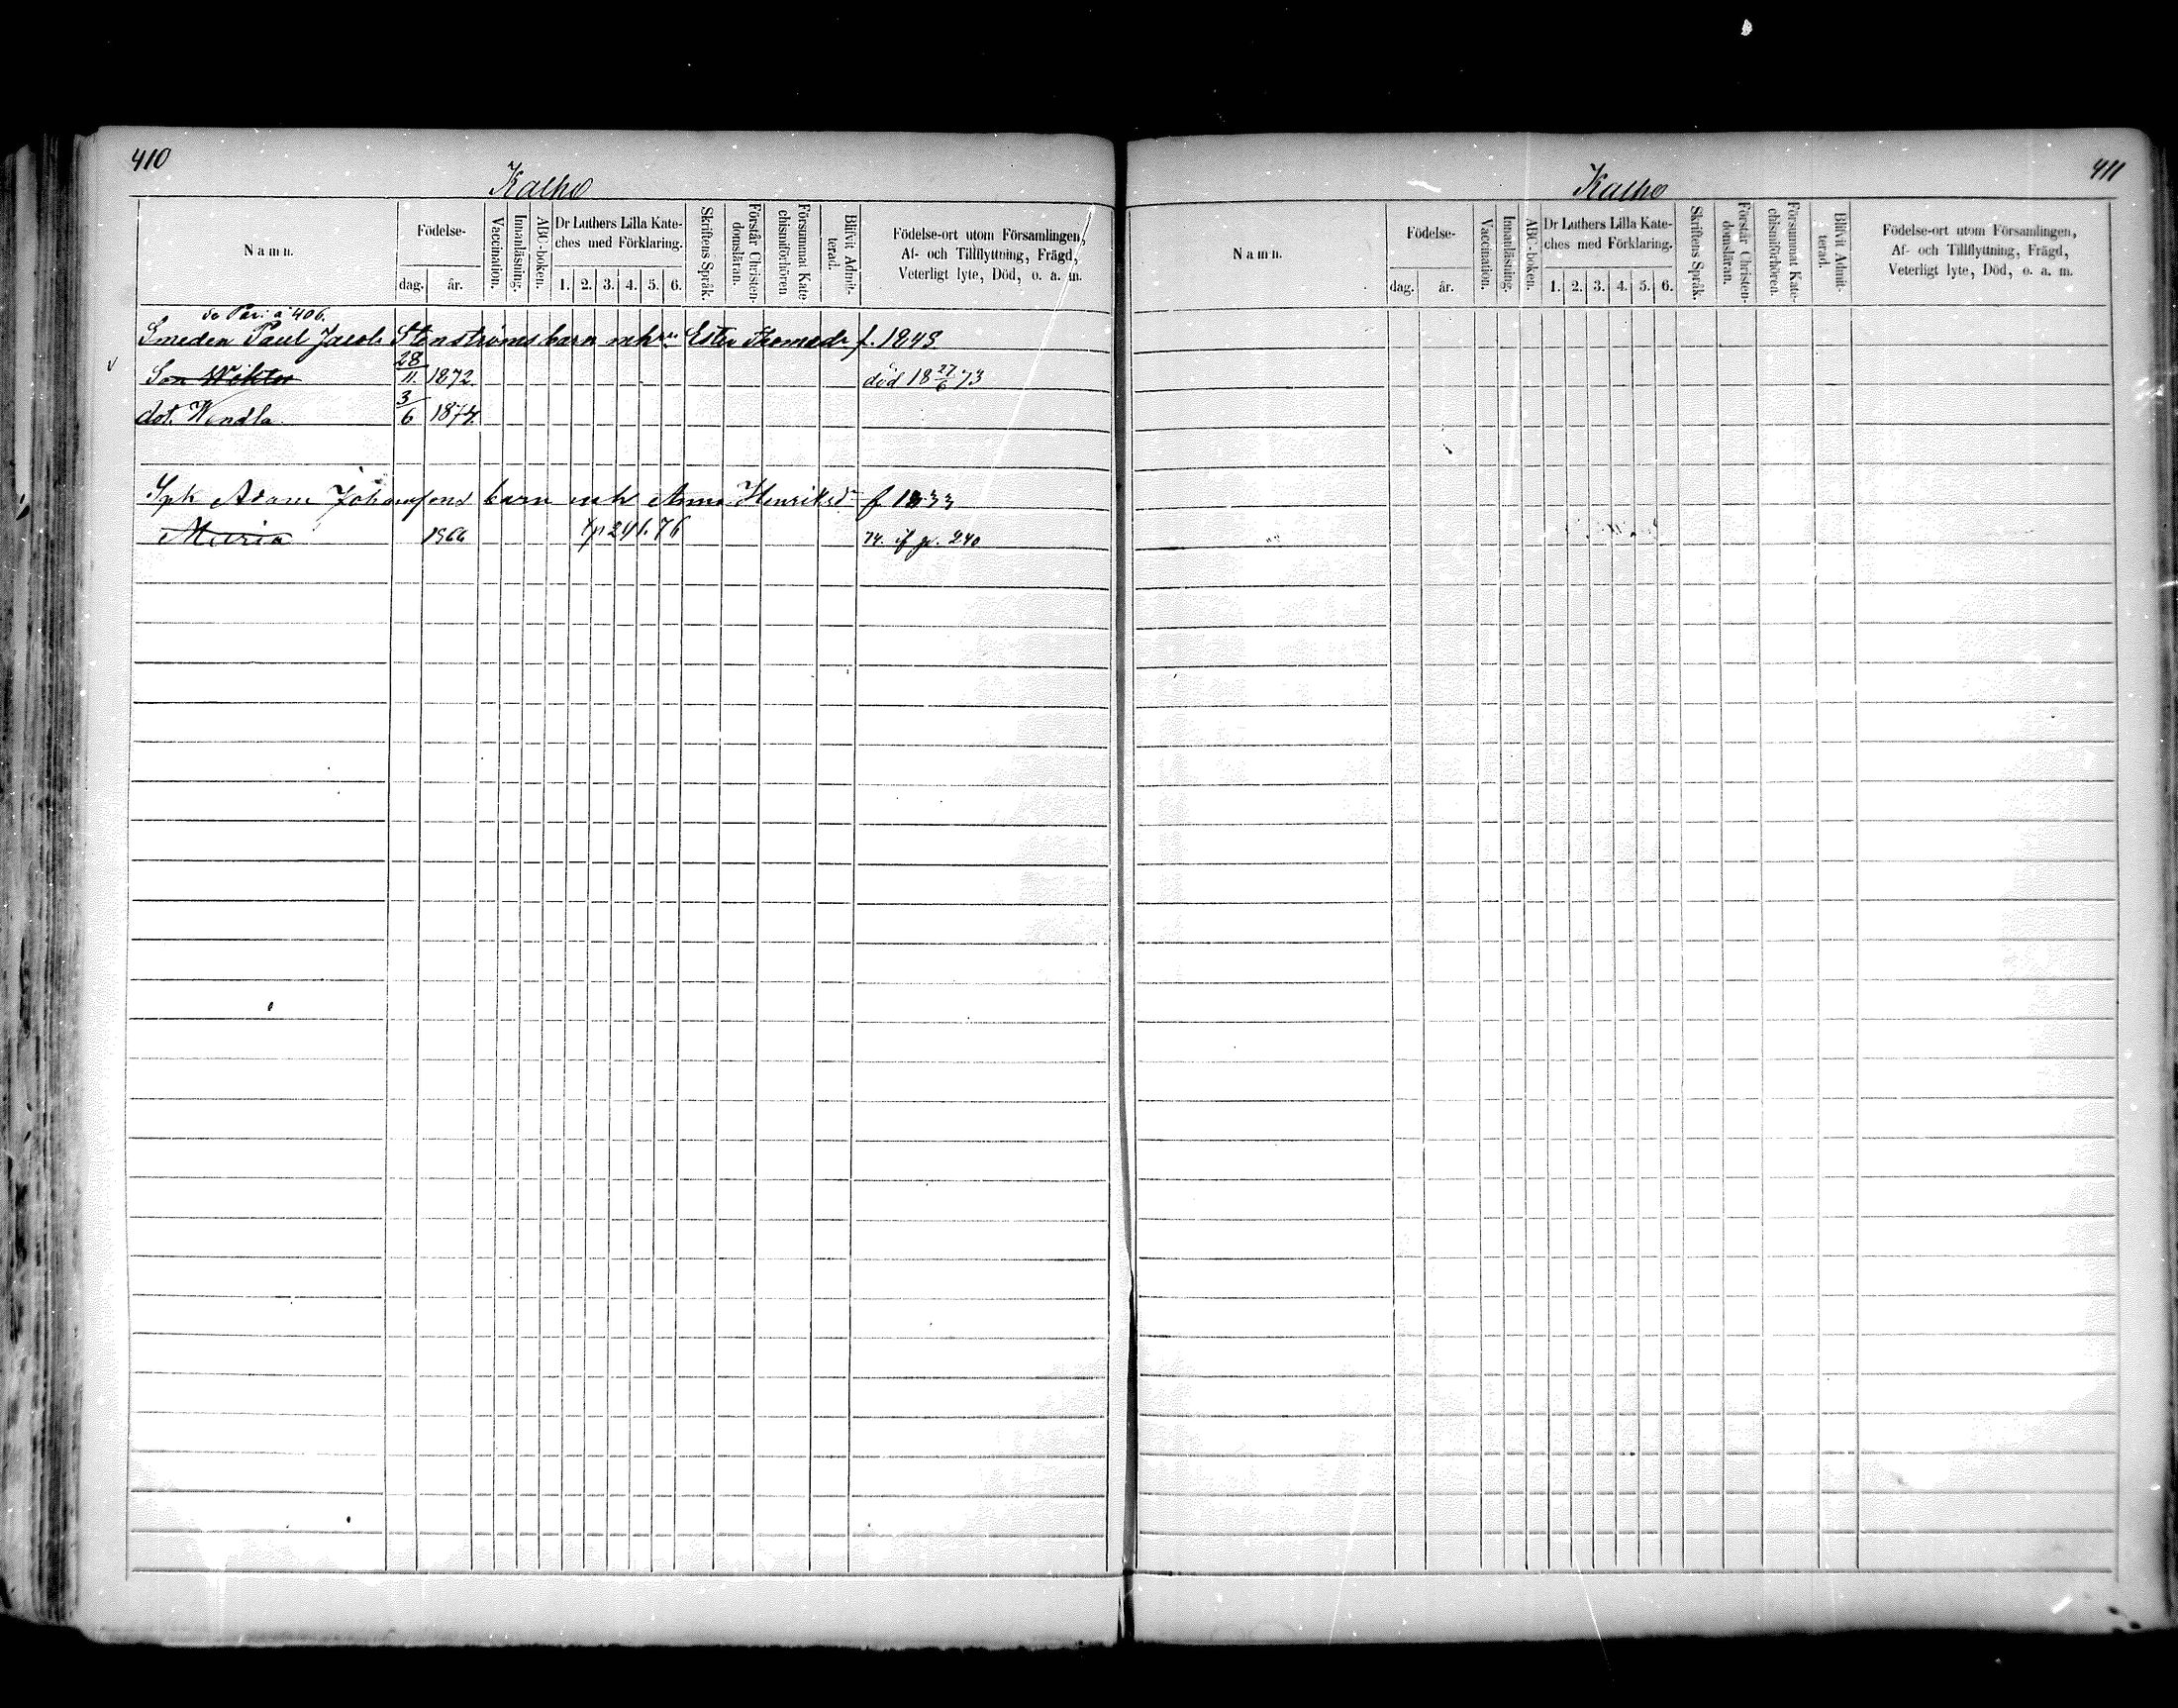 410
Kalho
Namn.
Födelse-
dag.
år.
Vaccination.
Innanläsning.
ABC-boken.
Dr Luthers Lilla Kate-
ches med Förklaring.
1. 2. 3. 4. 5. 6.
Skriftens Språk.
Förstår Christen-
domsläran.
Försummat Kate-
chismiförhören
Blifvit Admit-
terad.
Födelse-ort utom Församlingen,
Af- och Tillflyttning, Frägd,
Veterligt lyte, Död, o. a. m.
406.
Smeden Paul Jacob Stenströms barn mh Ester Thomasdr f. 1849
Son Wiktor 28/11 1872. död 18 27/6 73
dot. Wendla 3/6 1874.
Adam Johanssons barn mh Anna Henriksdr f 1833
Maria 1866 241. 76 p. 240
411
Kalho
Namn.
Födelse-
dag.
år.
Vaccination.
Innanläsning.
ABC-boken.
Dr Luthers Lilla Kate-
ches med Förklaring.
1. 2. 3. 4. 5. 6.
Skriftens Språk.
Förstår Christen-
domsläran.
Försummat Kate-
chismiförhören.
Blifvit Admit-
terad.
Födelse-ort utom Församlingen,
Af- och Tillflyttning, Frägd,
Veterligt lyte, Död, o. a. m.